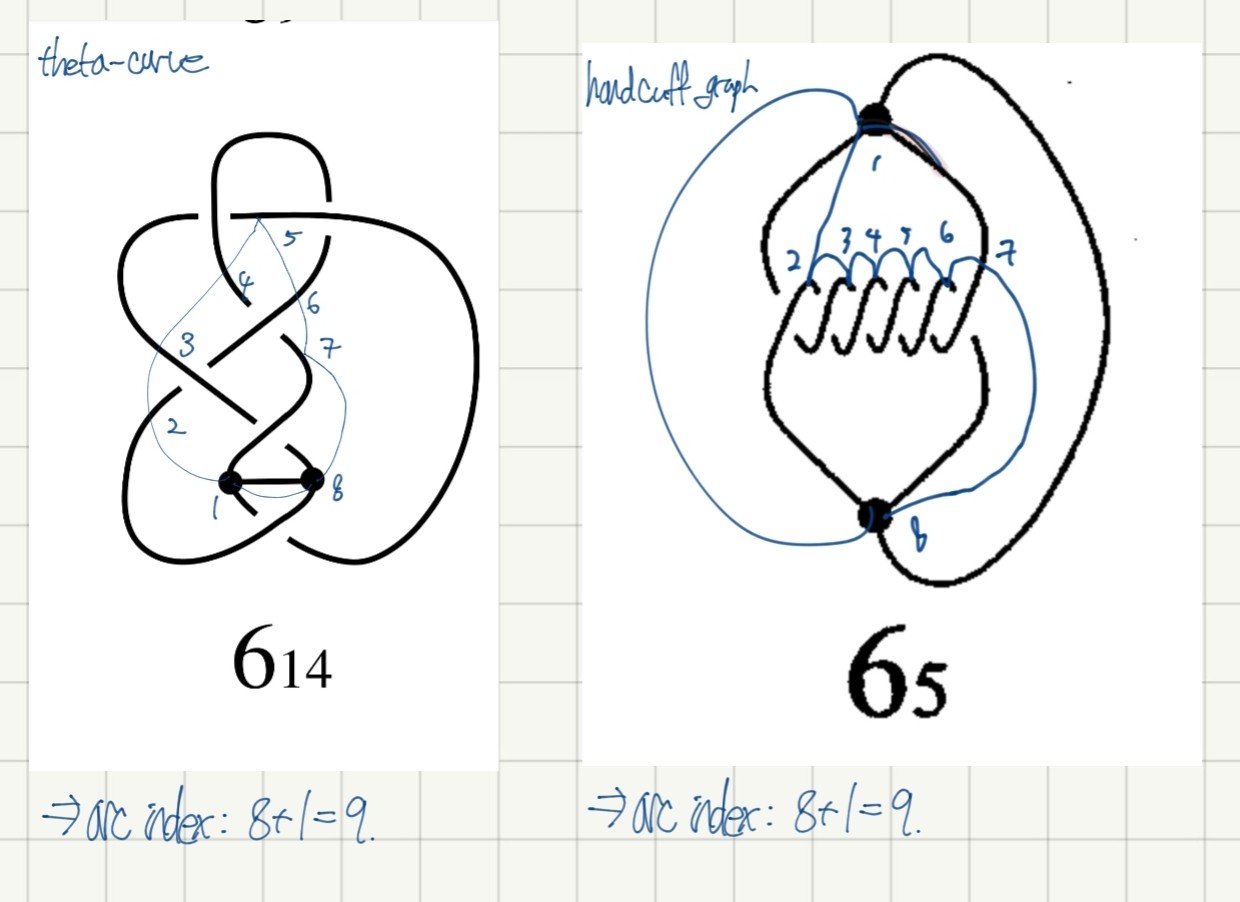 theta-curve
4
5
6
3
7
2
1
8
6₁₄
⇒ arc index: 8+1=9.
handcuff graph
1
2 3 4 5 6 7
8
6₅
⇒ arc index: 8+1=9.